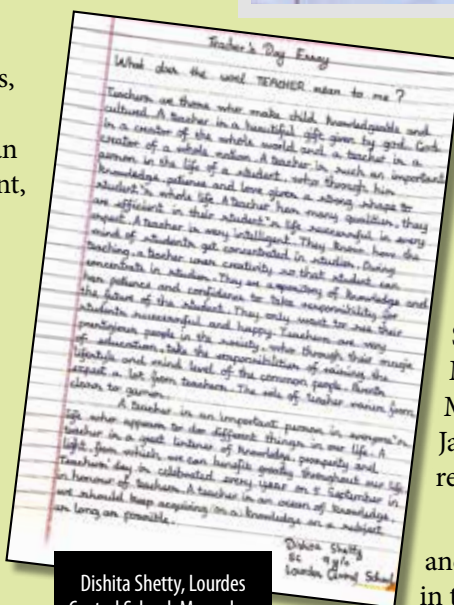 Teacher's Day Essay
What does the word TEACHER mean to me ?
Teachers are those who make child knowledgeable and
cultured. A teacher is a beautiful gift given by god. God
is a creator of the whole world and a teacher is a
creator of a whole nation. A teacher is such an important
person in the life of a student, who through his
knowledge, patience and love gives a strong shape to
student's whole life. A teacher has many qualities, they
are efficient in their student's life successful in every
aspect. A teacher is very intelligent. They know how the
mind of students get concentrated in studies. During
teaching, a teacher uses creativity so that student can
concentrate in studies. They are a repository of knowledge and
has patience and confidence to take responsibility for
the future of the student. They only want to see their
students successful and happy. Teachers are very
prestigious people in the society, who through their magic
of education, take the responsibilities of raising the
lifestyle and mind level of the common people. Parents
expect a lot from teachers. The role of teacher varies from
class to
A teacher is an important person in everyone's
life who appears to do different things in our life. A
teacher is a great of knowledge, prosperity and
light, from which we can benefit greatly throughout our life.
Teachers' day is celebrated every year on 5 September in
in honour of teachers. A teacher is an ocean of knowledge,
we should keep acquiring on a knowledge on a subject
as long as possible.
Dishita Shetty
Lourdes Central School
s,
an
nt,
Ja
re
and
in t
Dishita Shetty, Lourdes